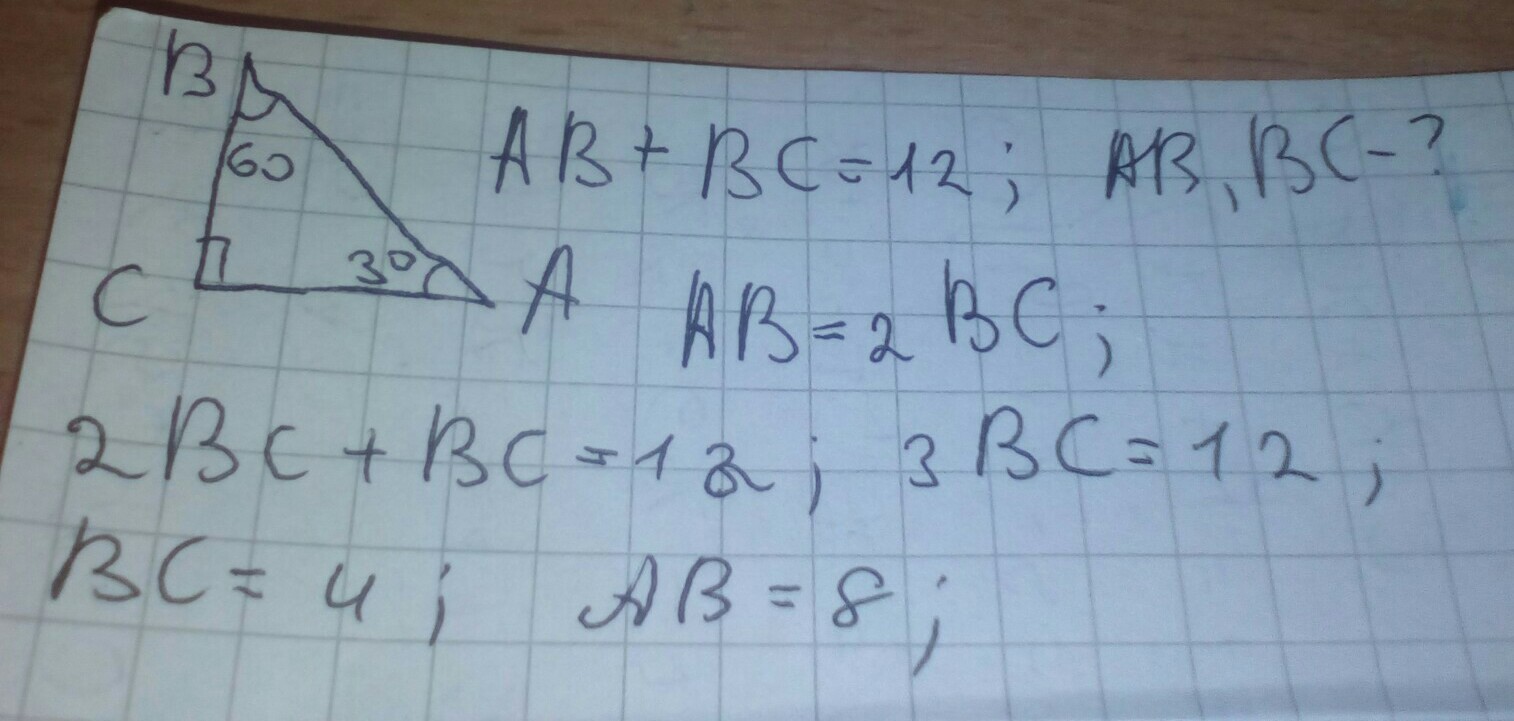 B
60
AB + BC = 12; AB, BC - ?
C
30
A
AB = 2 BC;
2BC + BC = 12; 3 BC = 12;
BC = 4; AB = 8;